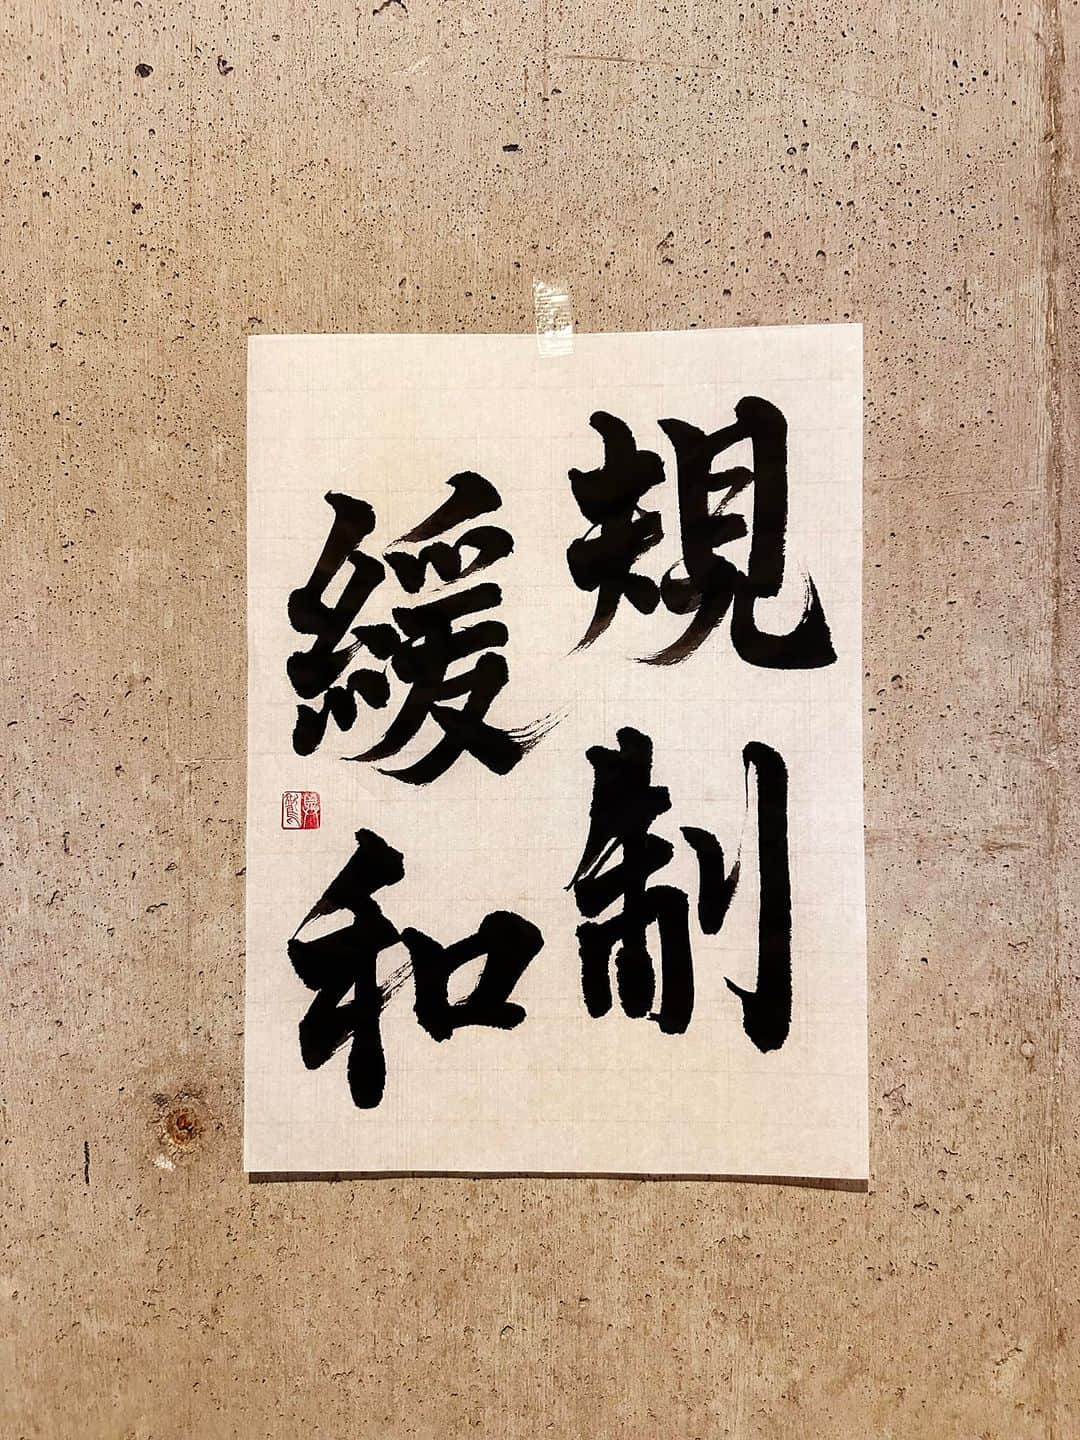 規制
緩和